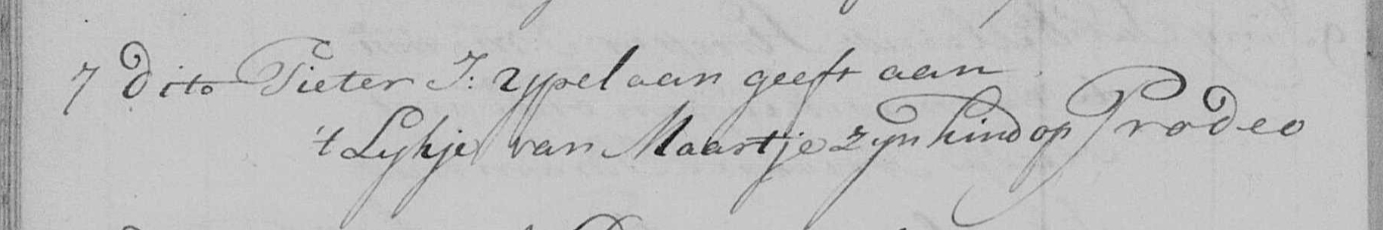 7 dito Pieter J: Ypelaan geeft aan
't Lykje van Maartje zyn kind op Prodeo